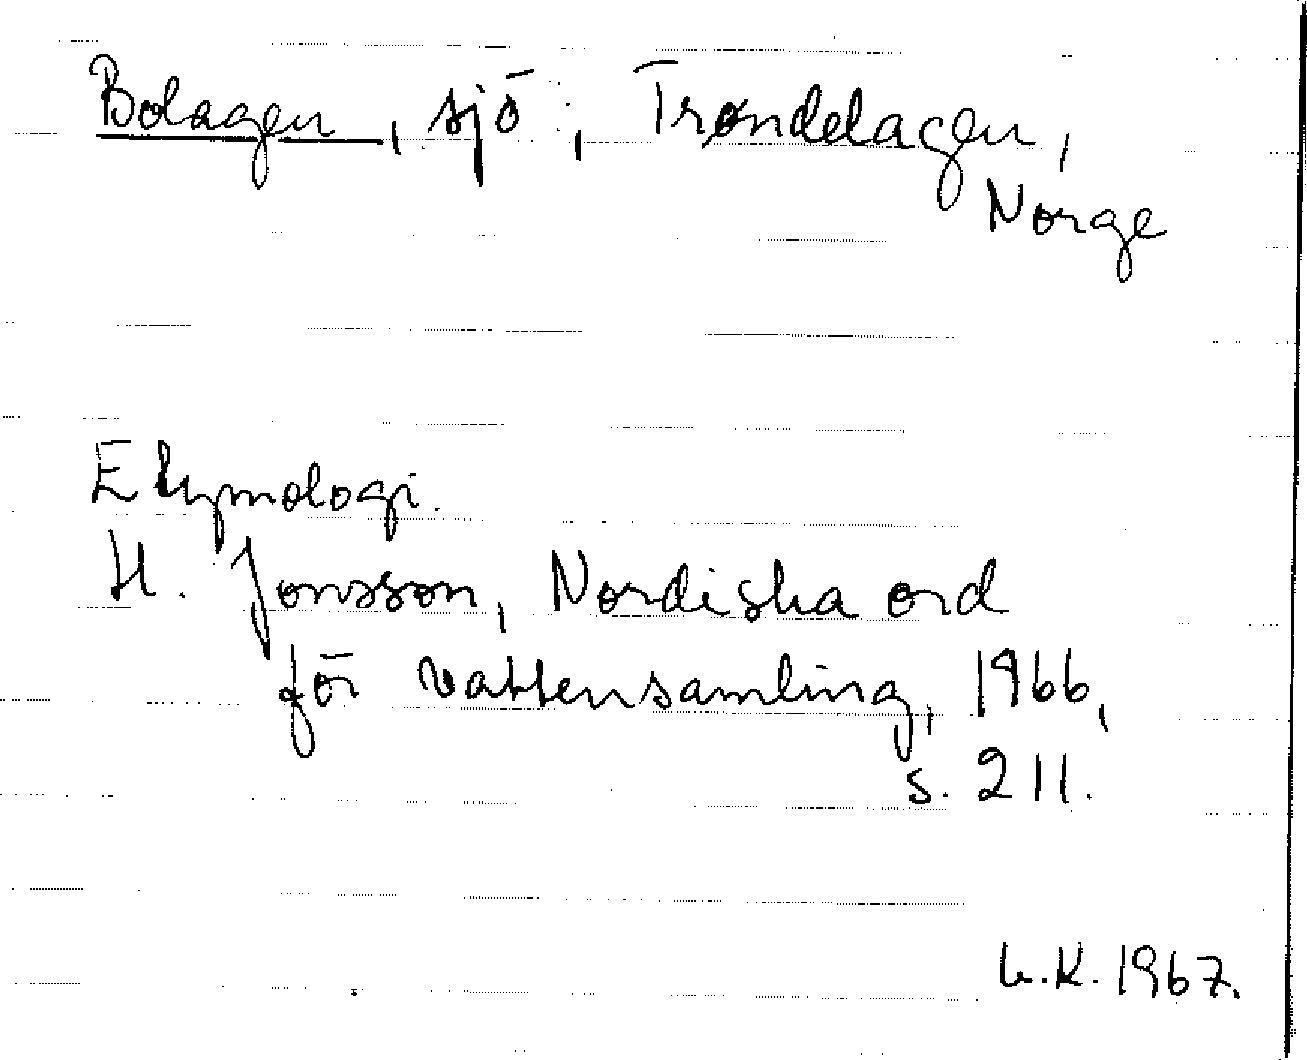 Bolagen, sjö, Trøndelagen,
Norge
Etymologi.
H. Jonsson, Nordiska ord
för vattensamling, 1966,
s. 211.
L.K. 1967.